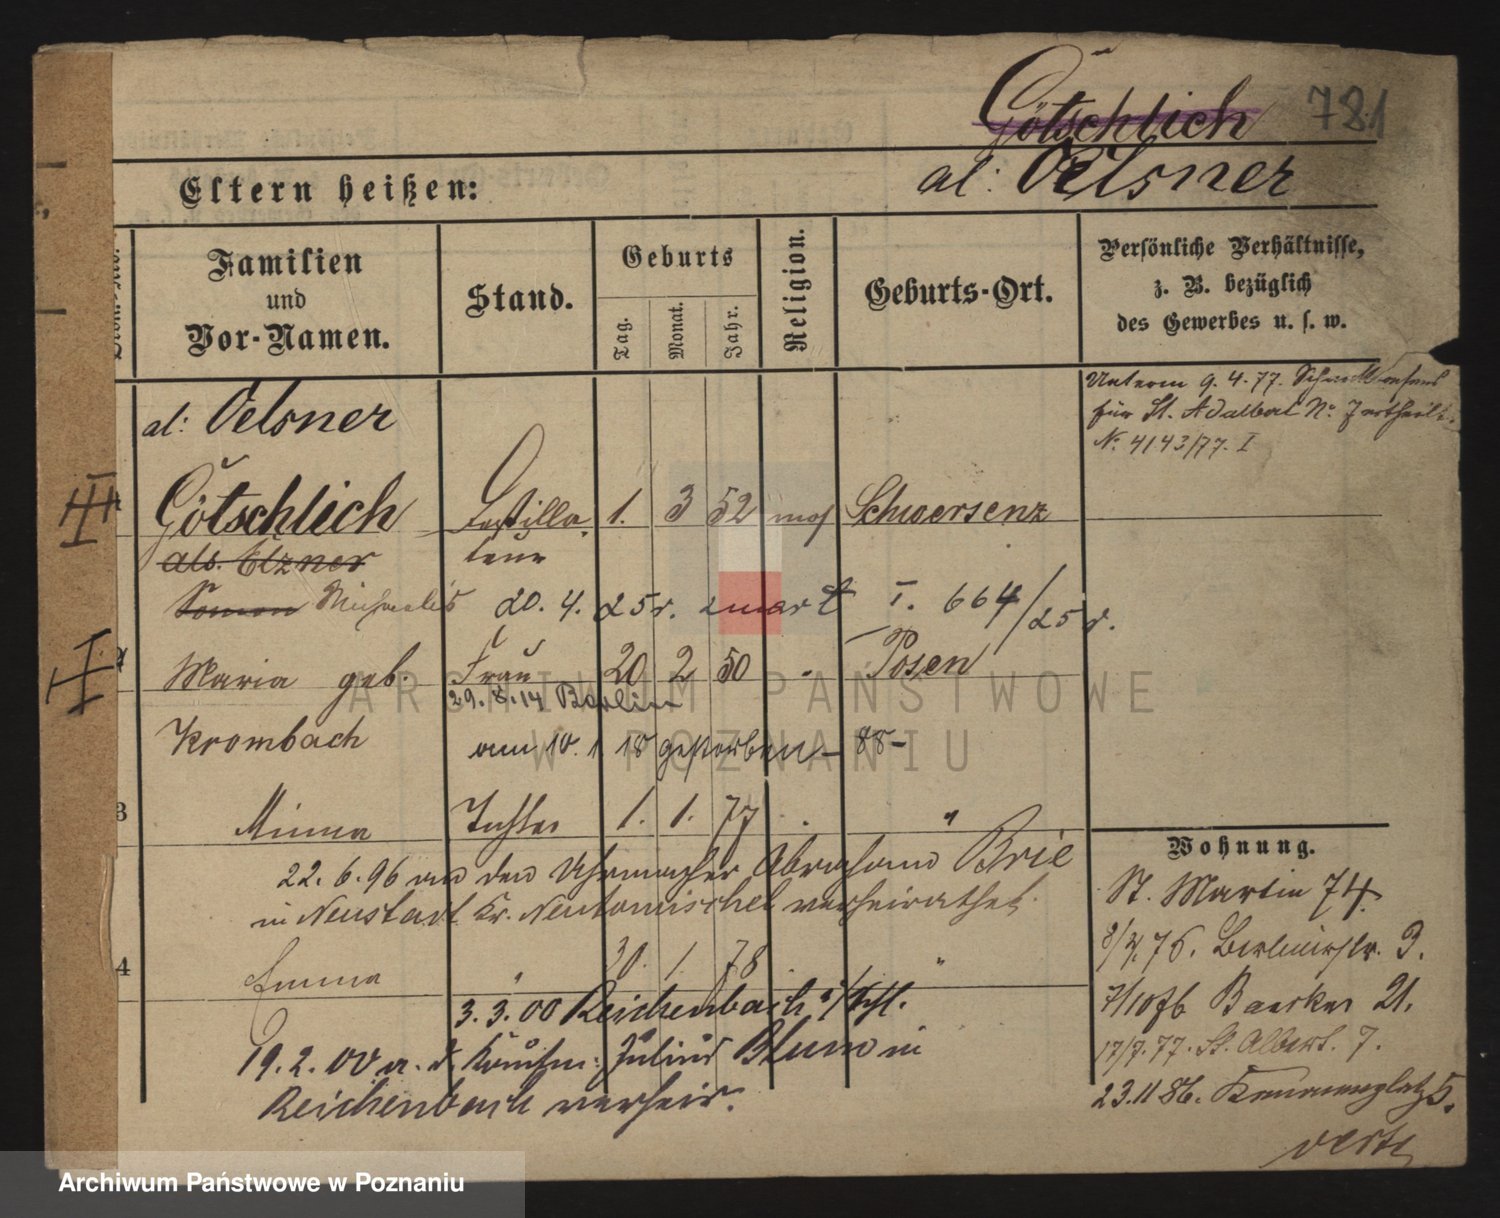 Götschlich 781
al: Oelsner
Eltern heißen:
Familien und Vor-Namen.
Stand.
Geburts
Tag. Monat. Jahr.
Religion.
Geburts-Ort.
Persönliche Verhältnisse,
z. B. bezüglich
des Gewerbes u. s. w.
Unterm 9. 4. 77.
für St. Adalbert No. 7 ertheilt.
No. 4143/77. I
al: Oelsner
Götschlich Destilla 1. 3 52 mos Schwersenz
als Elzner teur
Simon Michaelis 20. 4. 25 I. 664/25
Maria geb. Frau 20 2 50 Posen
29. 8. 14 Berlin
Krombach am 10. 1. 18 gestorben - 88 -
3 Minna Tochter 1. 1. 77 "
22. 6. 96 an den Uhrmacher Abraham Brie
in Neustadt Kr. Neutomischel verheirathet.
4 Emma " 30. 1. 78 "
3. 3. 00 Reichenbach i/Schl.
19. 2. 00 a. d. Kaufm: Julius Blum in
Reichenbach verheir.
Wohnung.
St. Martin 74.
8/4. 76. Berlinerstr. 3.
7/10 76 Baecker 21.
17/7. 77. St. Albert. 7.
23. 11 86. 5.
verte
ARCHIWUM PAŃSTWOWE
W POZNANIU
Archiwum Państwowe w Poznaniu